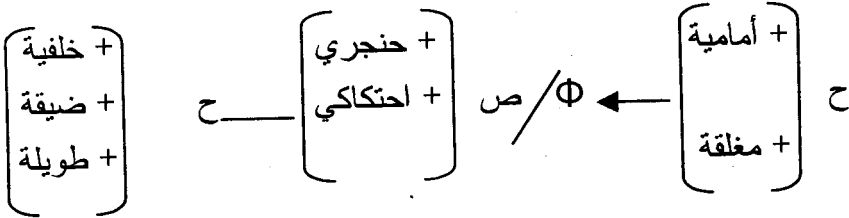 ح [ + أمامية + مغلقة ] ← Φ / ص [ + حنجري + احتكاكي ] ___ ح [ + خلفية + ضيقة + طويلة ]